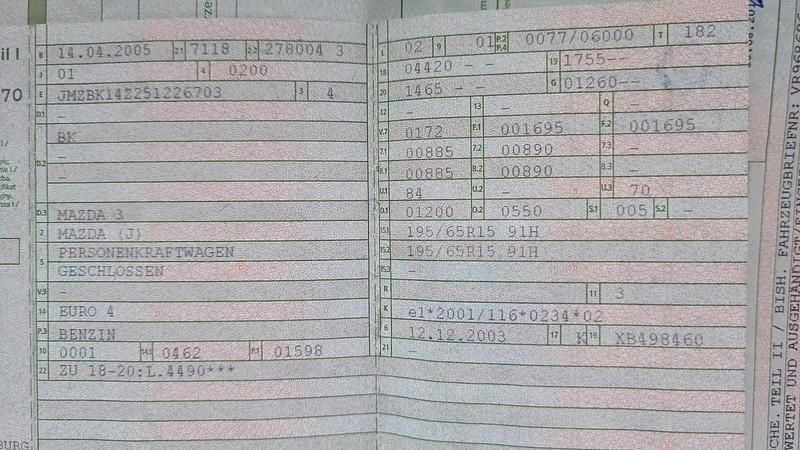 il I
70
BURG,
B 14.04.2005 2.1 7118 2.2 278004 3
J 01 4 0200
E JMZBK14Z251226703 3 4
D.1 –
BK
D.2 –
–
D.3 MAZDA 3
2 MAZDA (J)
5 PERSONENKRAFTWAGEN
GESCHLOSSEN
V.9 –
14 EURO 4
P.3 BENZIN
10 0001 14.1 0462 P.1 01598
22 ZU 18-20:L.4490***
L 02 9 01 P.2 P.4 0077/06000 T 182
18 04420 – – 19 1755––
20 1465 – – G 01260––
12 – 13 – Q –
V.7 0172 F.1 001695 F.2 001695
7.1 00885 7.2 00890 7.3 –
8.1 00885 8.2 00890 8.3 –
U.1 84 U.2 – U.3 70
O.1 01200 O.2 0550 S.1 005 S.2 –
15.1 195/65R15 91H
15.2 195/65R15 91H
15.3 –
R 11 3
K e1*2001/116*0234*02
6 12.12.2003 17 K 16 XB498460
21 –
CHE. TEIL II / BISH. FAHRZEUGBRIEFNR: VB968
WERTET UND AUSGEHÄNDIGT